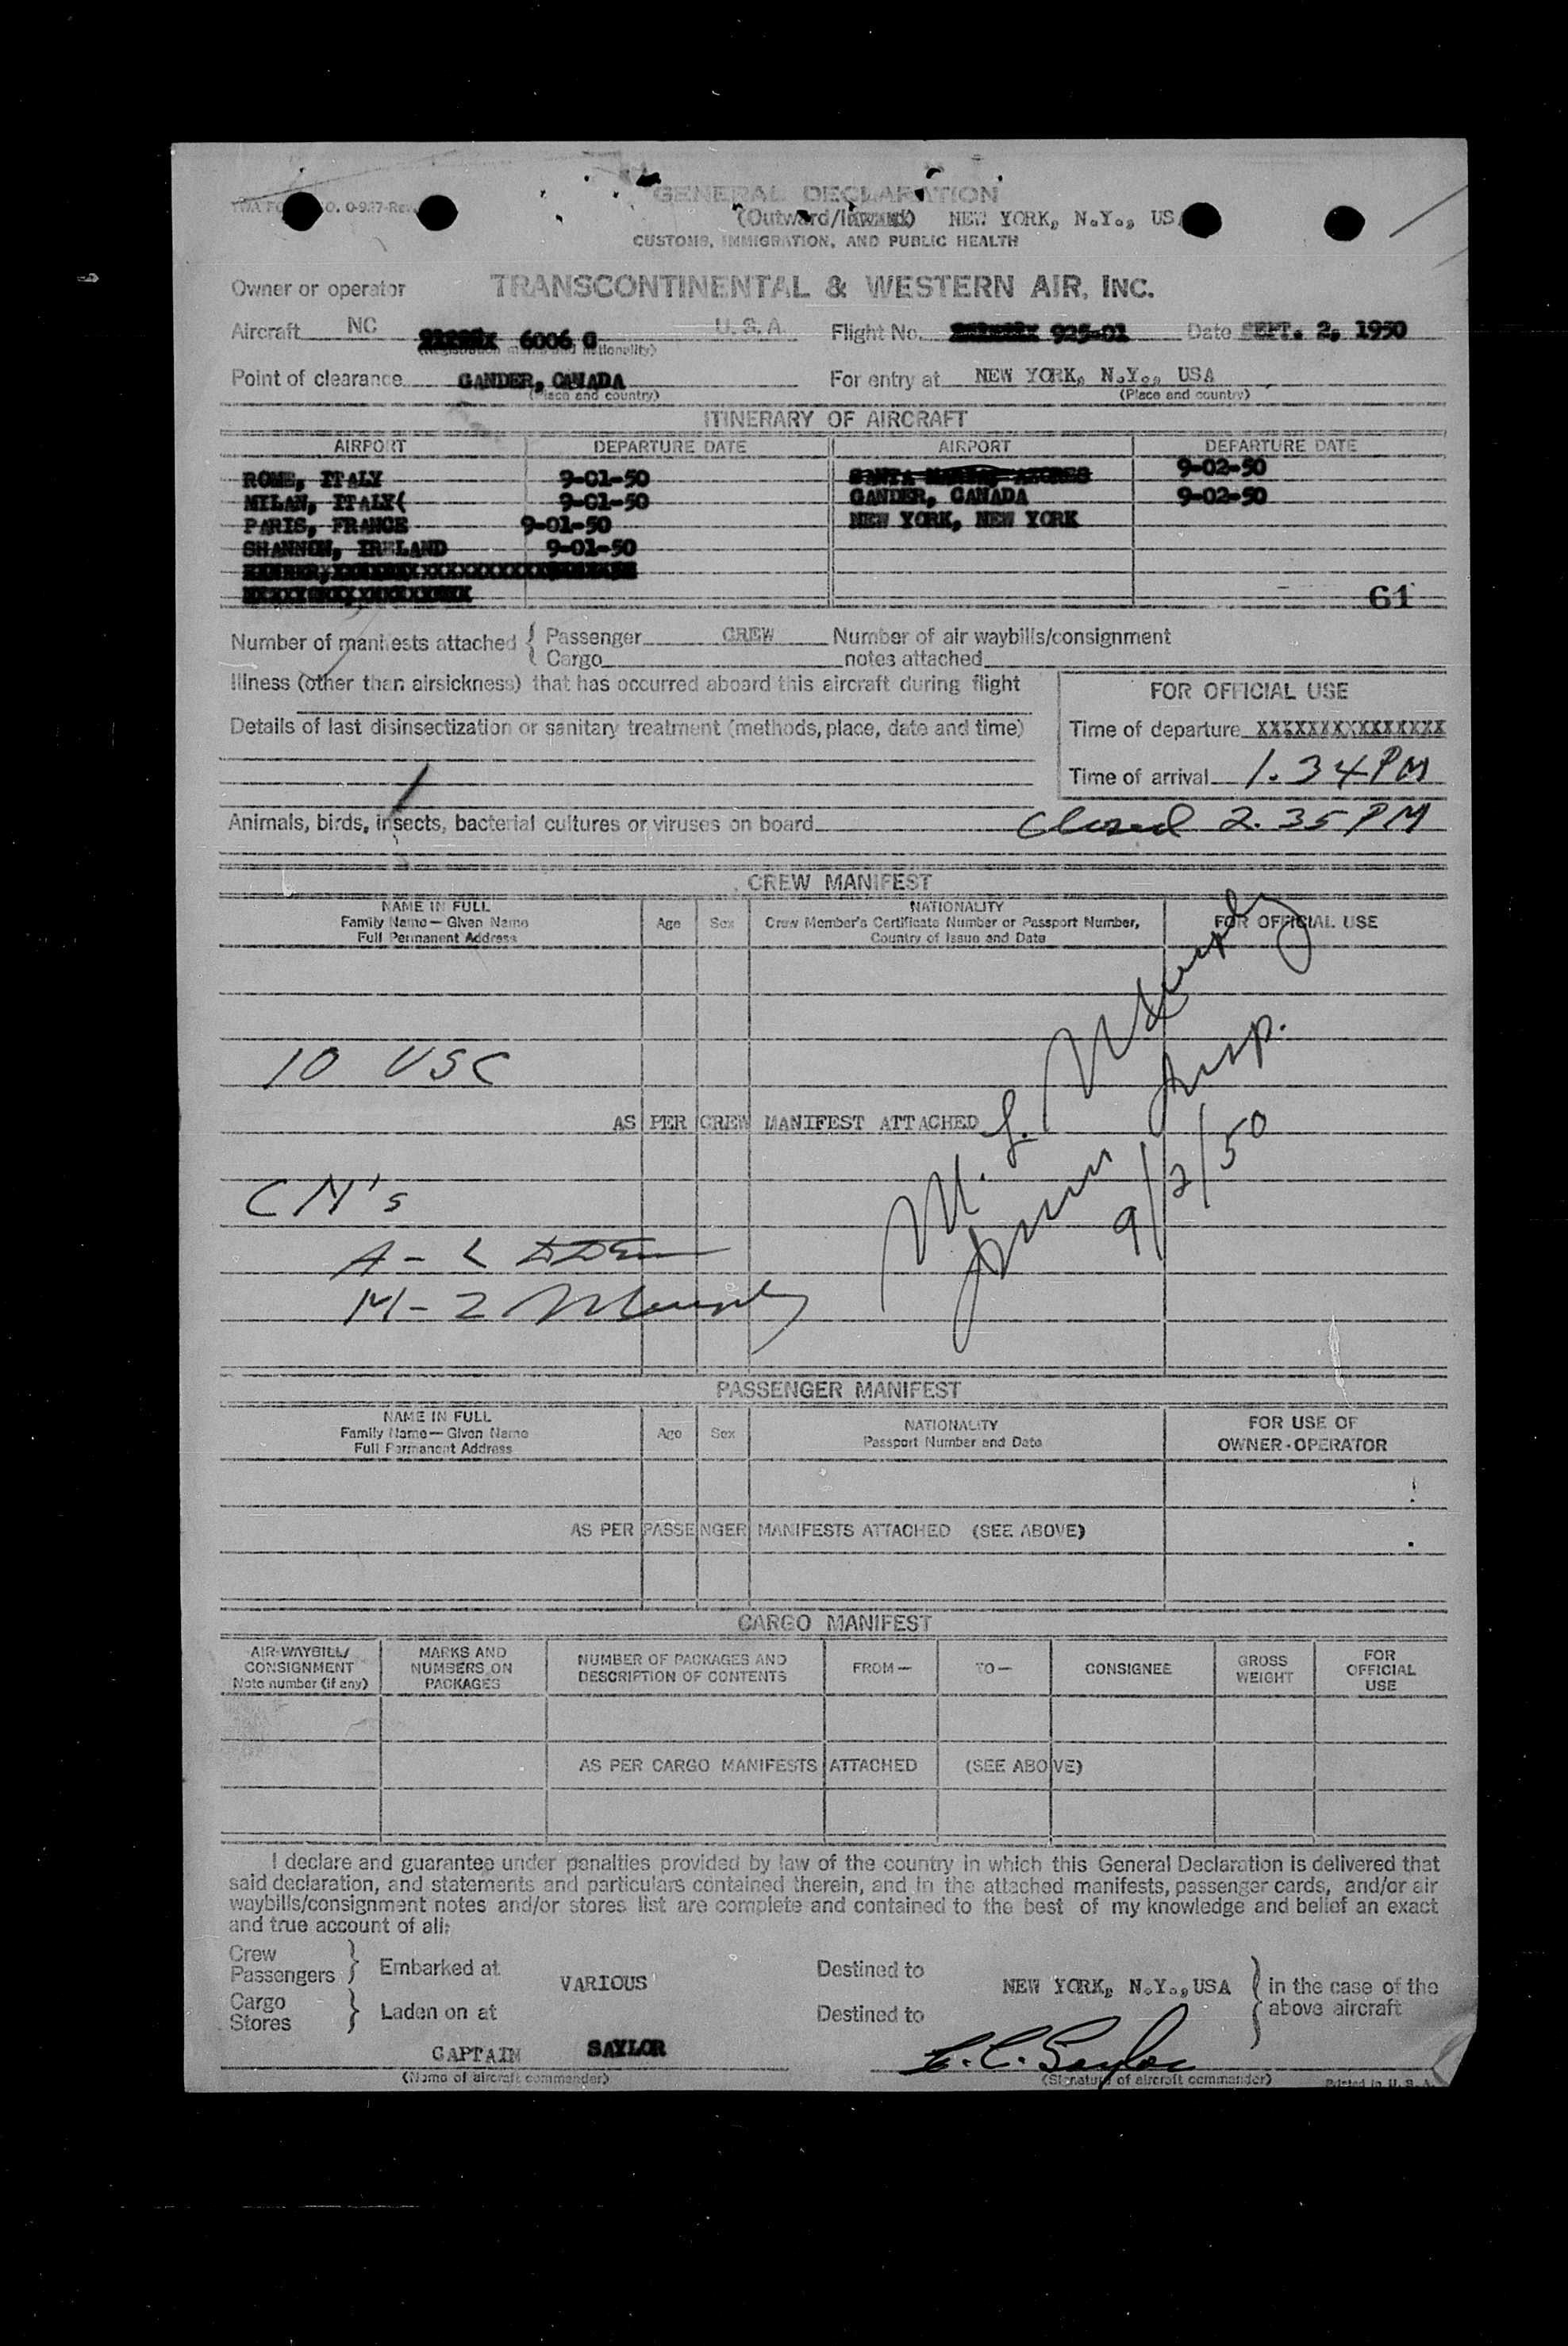 GENERAL DECLARATION
(Outward/Inward) NEW YORK, N.Y., USA
CUSTOMS, IMMIGRATION, AND PUBLIC HEALTH
Owner or operator TRANSCONTINENTAL & WESTERN AIR, INC.
Aircraft NC 6006 C U. S. A. Flight No. 925-01 Date SEPT. 2, 1950
(Registration marks and nationality)
Point of clearance GANDER, CANADA For entry at NEW YORK, N.Y., USA
(Place and country) (Place and country)
ITINERARY OF AIRCRAFT
AIRPORT DEPARTURE DATE AIRPORT DEPARTURE DATE
ROME, ITALY 9-01-50 SANTA MARIA, AZORES 9-02-50
MILAN, ITALY( 9-01-50 GANDER, CANADA 9-02-50
PARIS, FRANCE 9-01-50 NEW YORK, NEW YORK
SHANNON, IRELAND 9-01-50
61
Number of manifests attached { Passenger CREW Number of air waybills/consignment
Cargo notes attached
Illness (other than airsickness) that has occurred aboard this aircraft during flight
FOR OFFICIAL USE
Details of last disinsectization or sanitary treatment (methods, place, date and time)
Time of departure XXXXXXXXXXXXXXX
Time of arrival 1.34 PM
Animals, birds, insects, bacterial cultures or viruses on board Closed 2.35 PM
CREW MANIFEST
NAME IN FULL
Family Name—Given Name
Full Permanent Address
Age Sex
NATIONALITY
Crew Member's Certificate Number or Passport Number,
Country of Issue and Date
FOR OFFICIAL USE
10 USC
AS PER CREW MANIFEST ATTACHED
M. L. Murphy
Immn Insp.
9/2/50
CM's
M-2 Murphy
PASSENGER MANIFEST
NAME IN FULL
Family Name—Given Name
Full Permanent Address
Age Sex
NATIONALITY
Passport Number and Date
FOR USE OF
OWNER-OPERATOR
AS PER PASSENGER MANIFESTS ATTACHED (SEE ABOVE)
CARGO MANIFEST
AIR-WAYBILL/
CONSIGNMENT
Note number (if any)
MARKS AND
NUMBERS ON
PACKAGES
NUMBER OF PACKAGES AND
DESCRIPTION OF CONTENTS
FROM—
TO—
CONSIGNEE
GROSS
WEIGHT
FOR
OFFICIAL
USE
AS PER CARGO MANIFESTS ATTACHED (SEE ABOVE)
I declare and guarantee under penalties provided by law of the country in which this General Declaration is delivered that
said declaration, and statements and particulars contained therein, and in the attached manifests, passenger cards, and/or air
waybills/consignment notes and/or stores list are complete and contained to the best of my knowledge and belief an exact
and true account of all:
Crew
Passengers } Embarked at VARIOUS Destined to NEW YORK, N.Y., USA } in the case of the
above aircraft
Cargo
Stores } Laden on at Destined to
CAPTAIN SAYLOR
(Name of aircraft commander) (Signature of aircraft commander)
Printed in U. S. A.